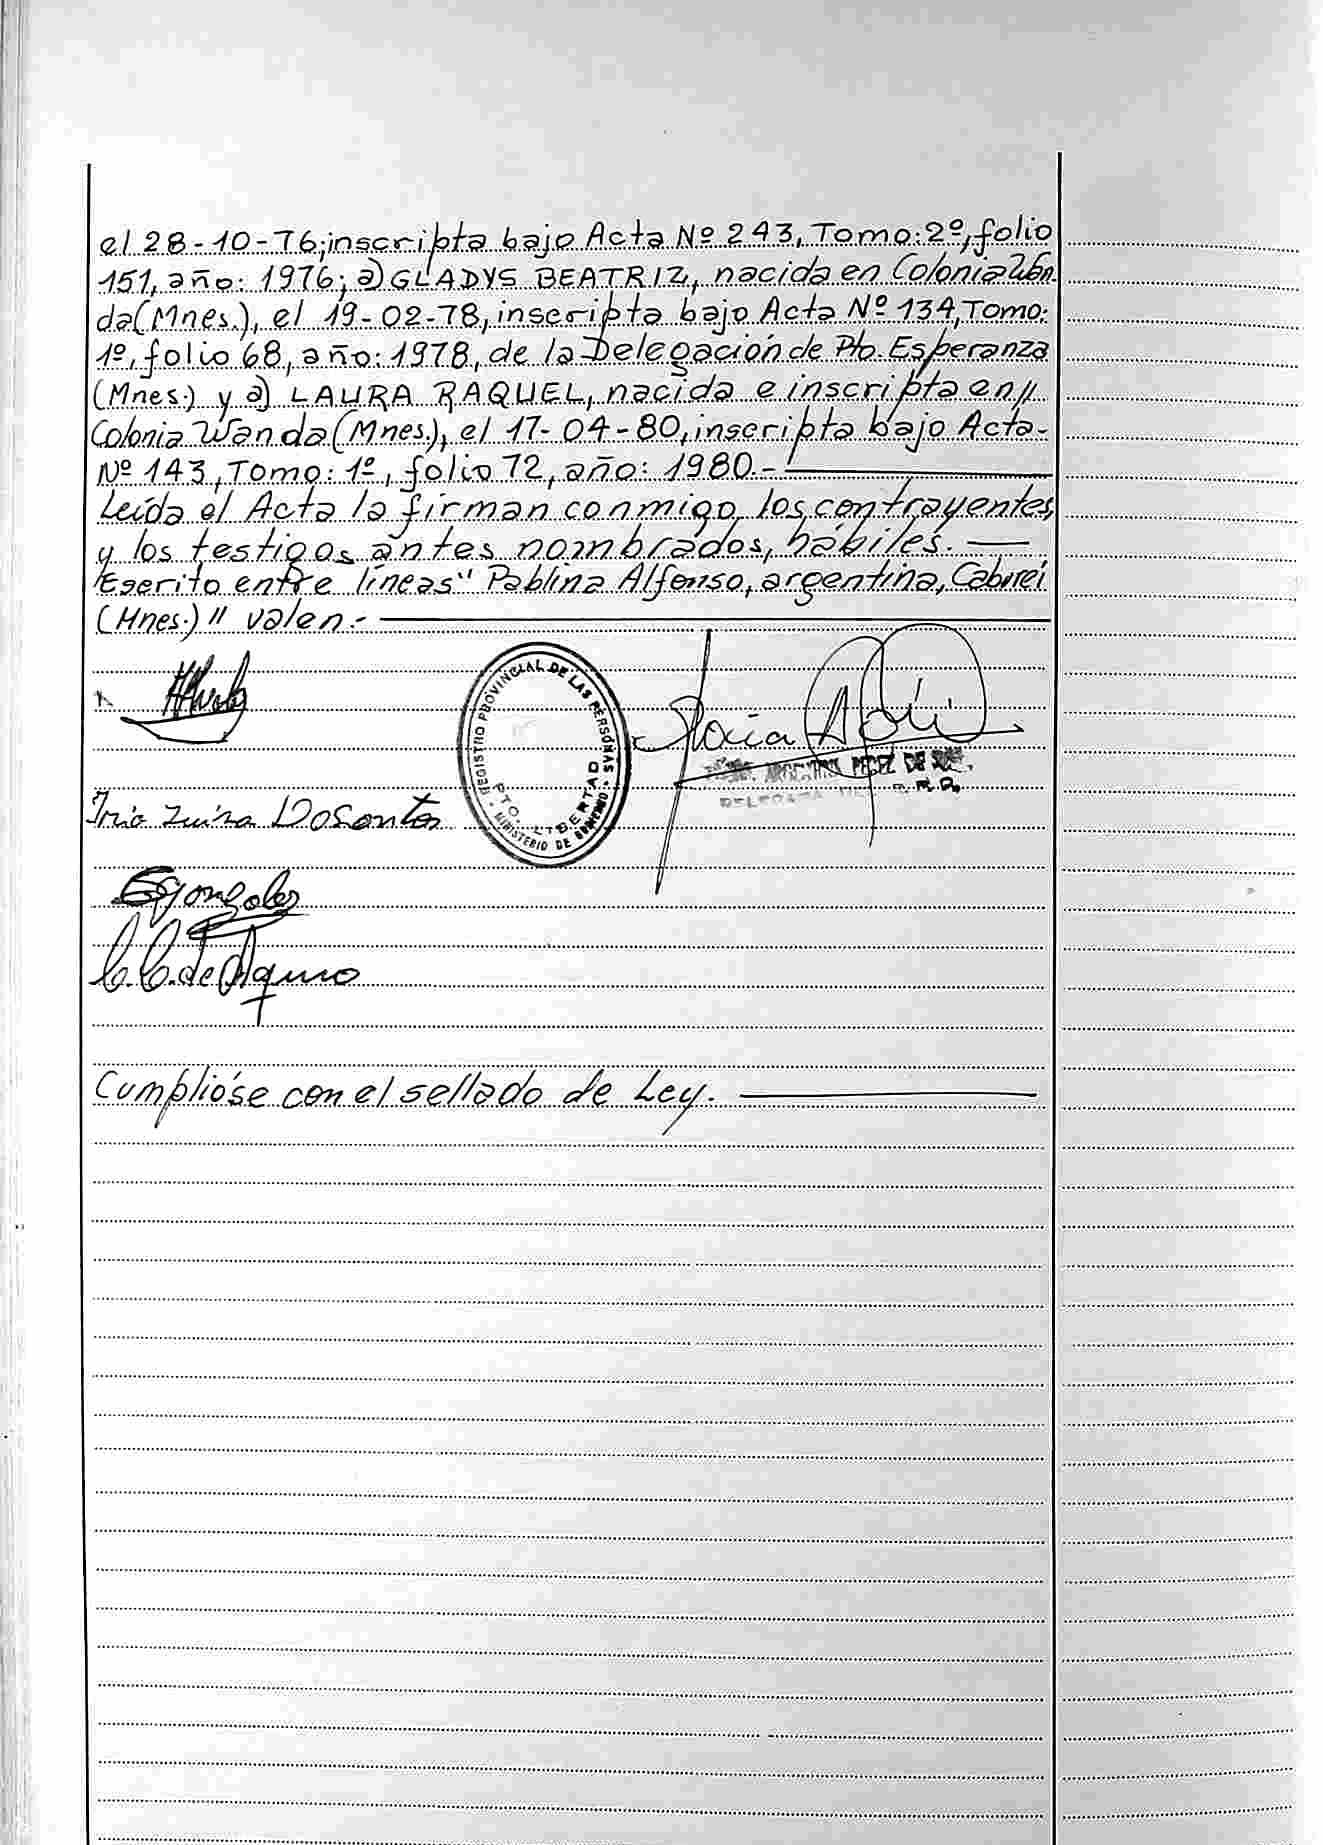 el 28-10-76, inscripta bajo Acta Nº 243, Tomo: 2º, folio
151, año: 1976; a) GLADYS BEATRIZ, nacida en Colonia Wan-
da (Mnes.), el 19-02-78, inscripta bajo Acta Nº 134, Tomo:
1º, folio 68, año: 1978, de la Delegación de Pto. Esperanza
(Mnes.) y a) LAURA RAQUEL, nacida e inscripta en //
Colonia Wanda (Mnes.), el 17-04-80, inscripta bajo Acta-
Nº 143, Tomo: 1º, folio 72, año: 1980.-
Leída el Acta la firman conmigo los contrayentes,
y los testigos antes nombrados, hábiles.
Escrito entre líneas "Pablina Alfonso, argentina, Caburei
(Mnes.)" valen.-
REGISTRO PROVINCIAL DE LAS PERSONAS
PTO. LIBERTAD
MINISTERIO DE GOBIERNO
PEREZ DE
DELEGADA R.P.
Luiza DoSantos
Gonzalez
C. C. de Aquino
Cumplióse con el sellado de Ley.